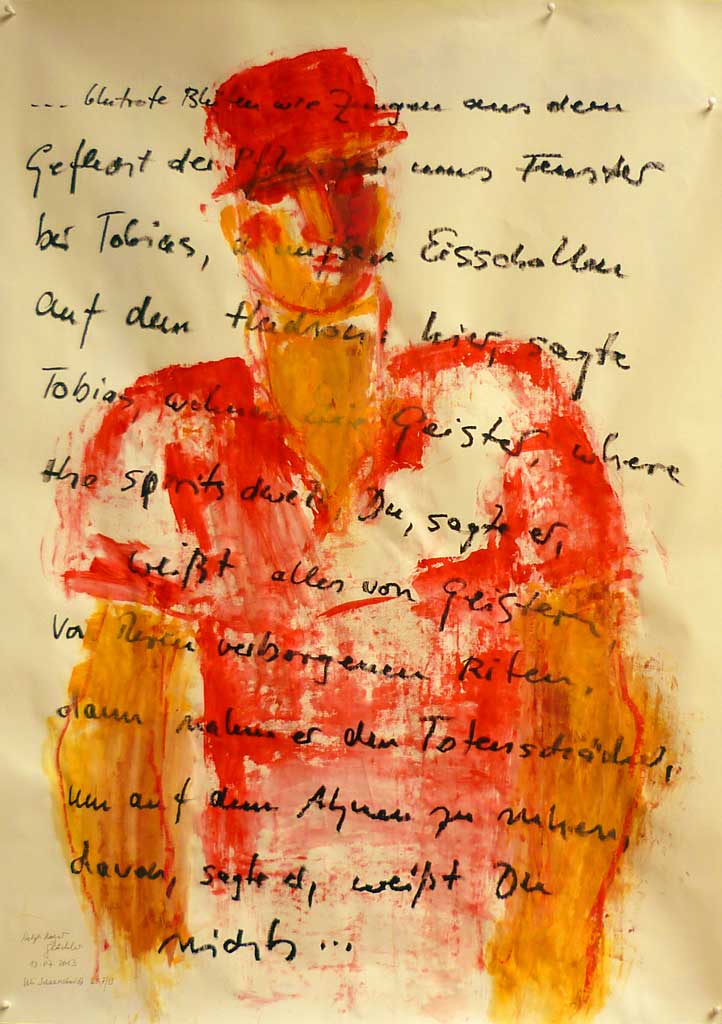 ... blutrote Blüten wie Zungen aus dem
Geflecht der Pflanzen ums Fenster
bei Tobias, draußen Eisschollen
auf dem Hudson: hier, sagte
Tobias, wohnen die Geister, where
the spirits dwell, Du, sagte er,
weißt alles von Geistern,
von ihren verborgenen Riten,
dann nahm er den Totenschädel,
um auf dem Ahnen zu ruhen,
davon, sagte er, weißt Du
nichts ...
2013